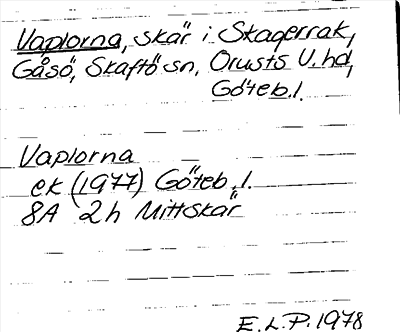 Vaplorna, skär i Skagerrak,
Gåsö, Skaftö sn, Orusts V. hd,
Göteb. l.
Vaplorna
ek (1977) Göteb. l.
8A 2h Mittskär
E. L. P. 1978